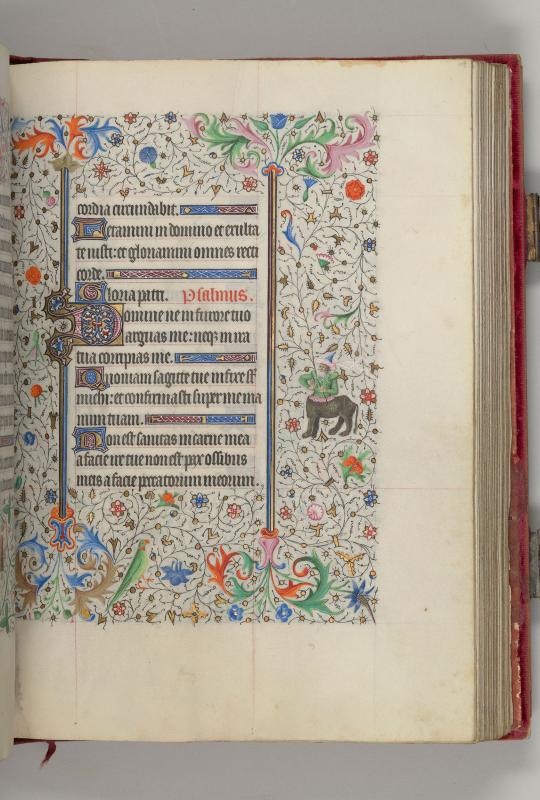 cordia circundabit.
Letamini in domino et exulta
te iusti: et gloriamini omnes recti
corde.
Gloria patri. Psalmus.
Domine ne in furore tuo
arguas me: neqz in ira
tua corripias me.
Quoniam sagitte tue infixe st
michi: et confirmasti super me ma
num tuam.
Non est sanitas in carne mea
a facie ire tue non est pax ossibus
meis a facie peccatorum meorum.